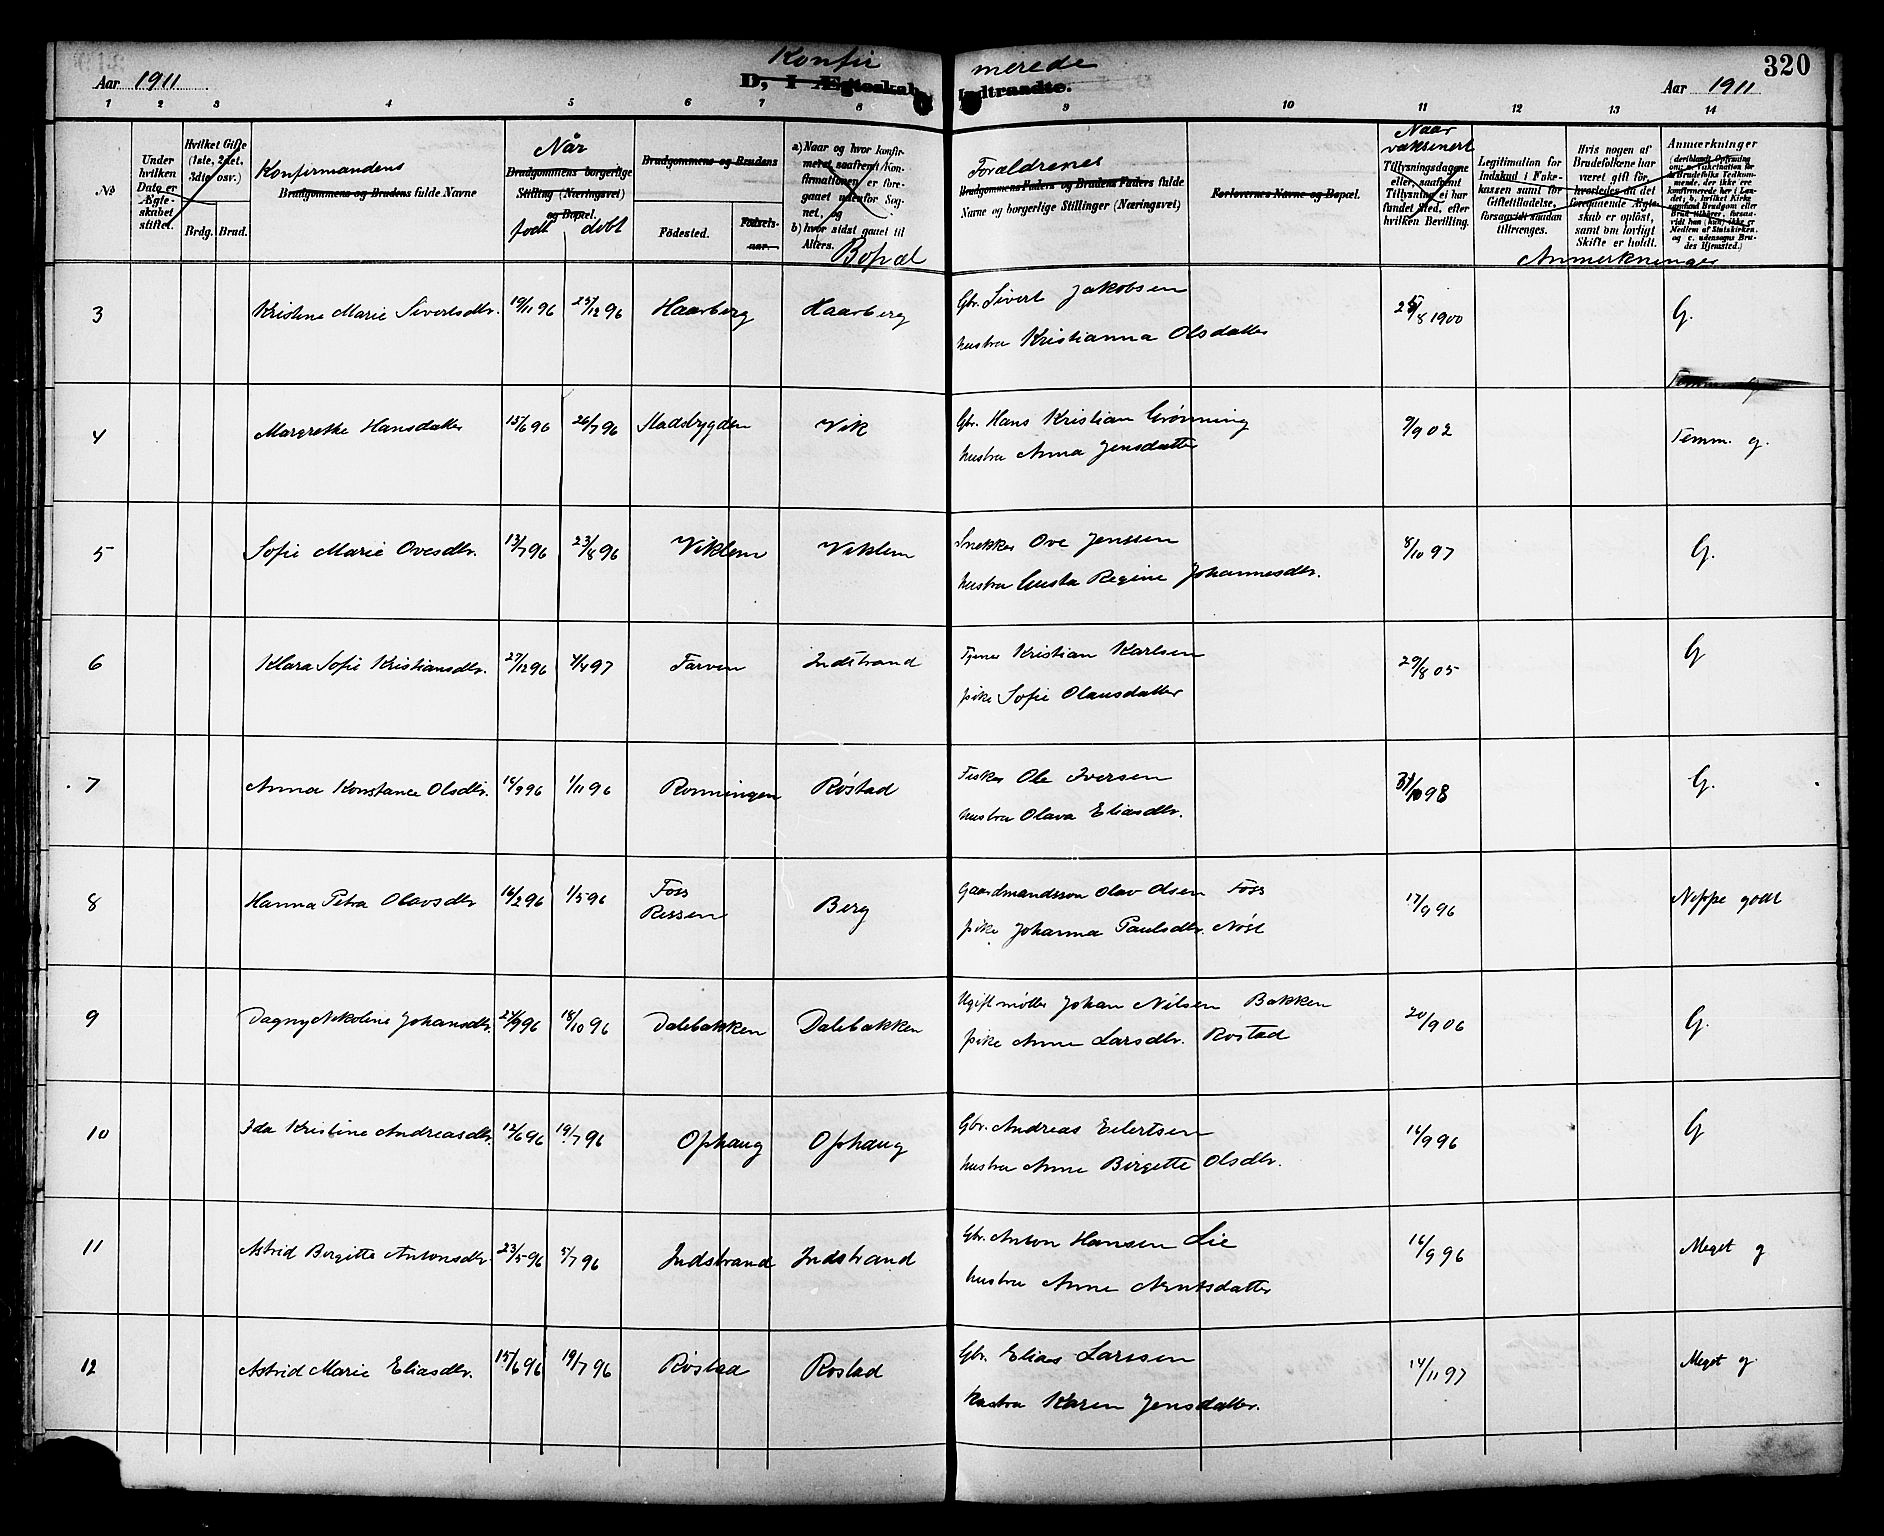 320
Aar 1911
Konfirmerede
D, I Ægteskab Indtraadte.
Aar 1911
1 2 3 4 5 6 7 8 9 10 11 12 13 14
№
Under hvilken Dato er Ægteskabet stiftet.
Hvilket Gifte (1ste, 2det, 3die osv.)
Brdg. Brud.
Konfirmandens
Brudgommens og Brudens fulde Navne
Når
Brudgommens borgerlige Stilling (Næringsvei) og Bopæl.
født døbt
Brudgommens og Brudens
Födested.
Födselsaar.
a) Naar og hvor konfirmeret, saafremt Konfirmationen er foregaaet udenfor Sognet, og
b) hvor sidst gaaet til Alters.
Bopæl
Forældrenes
Brudgommens Faders og Brudens Faders fulde Navne og borgerlige Stillinger (Næringsvei)
Forlovernes Navne og Bopæl.
Naar vaksinert
Tillysningsdagene eller, saafremt Tillysning ei har fundet Sted, efter hvilken Bevilling.
Legitimation for Indskud i Fakkassen samt for Giftetilladelse, forsaavidt saadan tiltrænges.
Hvis nogen af Brudefolkene har været gift før, hvorledes da det foregaaende Ægteskab er opløst, samt om lovligt Skifte er holdt.
Anmærkninger
Anmerkninger
3 Kristine Marie Sivertsdtr. 19/11 96 25/12 96 Haarberg Haarberg Gbr. Sivert Jakobsen 25/8 1900 G.
hustru Kristianna Olsdatter
4 Margrethe Hansdatter 15/6 96 26/7 96 Stadsbygden Vik Gbr. Hans Kristian Grønning 9/9 02 Temm. g.
hustru Anna Jensdatter
5 Sofie Marie Ovesdtr. 13/7 96 23/8 96 Viklem Viklem Snekker Ove Jenssen 8/10 97 G.
hustru Gusta Regine Johannesdtr.
6 Klara Sofie Kristiansdtr. 27/12 96 4/4 97 Tarven Indstrand Tjener Kristian Karlsen 29/8 05 G
pike Sofie Olausdatter
7 Anna Konstance Olsdtr. 16/9 96 1/11 96 Ronningen Røstad Fisker Ole Iversen 31/10 98 G.
hustru Olava Eliasdtr.
8 Hanna Petra Olavsdtr 16/2 96 1/5 96 Foss Rissen Berg Gaardmandssøn Olav Olsen Foss 17/9 96 Neppe godt
pike Johanna Paulsdtr. Nøst
9 Dagny Nikoline Johansdtr. 24/9 96 18/10 96 Dalebakken Dalebakken Ugift møller Johan Nilsen Bakken 20/9 06 G.
pike Anne Larsdtr. Rostad
10 Ida Kristine Andreasdtr. 12/6 96 19/7 96 Ophaug Ophaug Gbr. Andreas Eilertsen 16/9 96 G
hustru Anne Birgitte Olsdtr.
11 Astrid Bergitte Antonsdtr. 23/5 96 5/7 96 Indstrand Indstrand Gbr. Anton Hansen Lie 16/9 96 Meget g
hustru Anne Arntsdatter
12 Astrid Marie Eliasdtr. 15/6 96 19/7 96 Røstad Rostad Gbr. Elias Larssen 14/11 97 Meget g
hustru Karen Jensdatter.